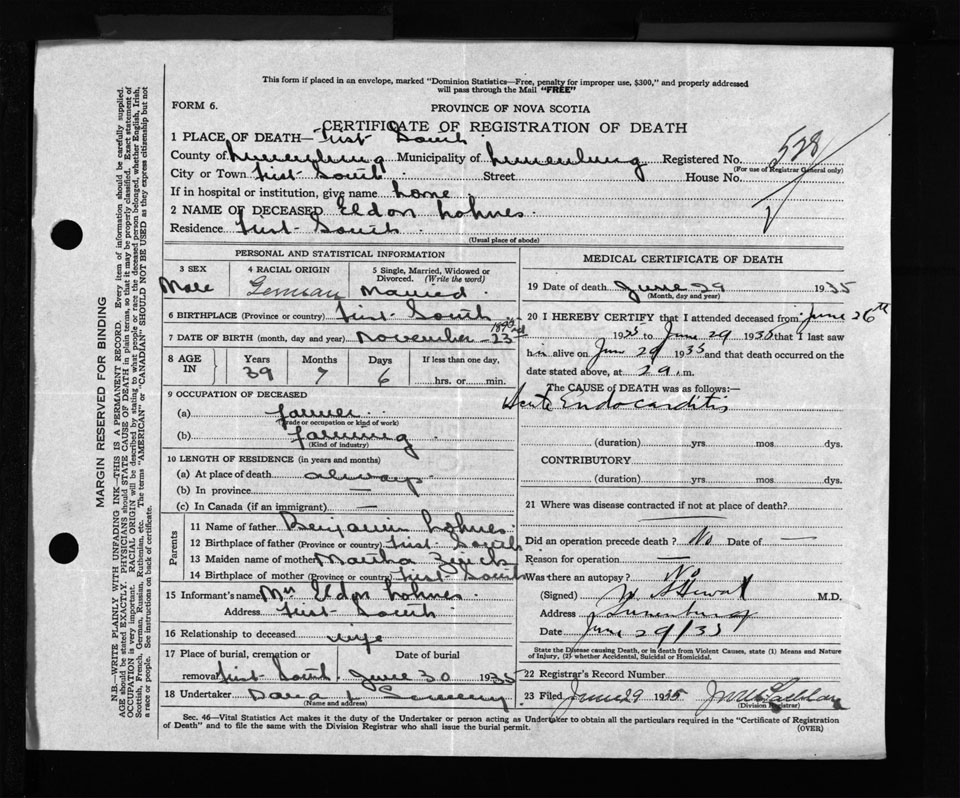 This form if placed in an envelope, marked "Dominion Statistics—Free, penalty for improper use, $300," and properly addressed
will pass through the Mail "FREE"
FORM 6.
PROVINCE OF NOVA SCOTIA
CERTIFICATE OF REGISTRATION OF DEATH
1 PLACE OF DEATH— First South
County of Lunenburg Municipality of Lunenburg Registered No. 528
(For use of Registrar General only)
City or Town First South Street House No.
If in hospital or institution, give name home
2 NAME OF DECEASED Eldon Lohnes.
Residence First South.
(Usual place of abode)
PERSONAL AND STATISTICAL INFORMATION
3 SEX
Male
4 RACIAL ORIGIN
German
5 Single, Married, Widowed or
Divorced. (Write the word)
Married.
6 BIRTHPLACE (Province or country) First South
7 DATE OF BIRTH (month, day and year) November 23rd 1895
8 AGE IN Years Months Days If less than one day,
39 7 6 hrs. or min.
9 OCCUPATION OF DECEASED
(a) farmer
(Trade or occupation or kind of work)
(b) farming
(Kind of industry)
10 LENGTH OF RESIDENCE (in years and months)
(a) At place of death always
(b) In province —
(c) In Canada (if an immigrant) —
Parents
11 Name of father Benjamin Lohnes.
12 Birthplace of father (Province or country) First South
13 Maiden name of mother Martha
14 Birthplace of mother (Province or country) First South
15 Informant's name Mrs Eldon Lohnes.
Address First South.
16 Relationship to deceased wife
17 Place of burial, cremation or
removal First South
Date of burial
June 30 1935
18 Undertaker
(Name and address)
MEDICAL CERTIFICATE OF DEATH
19 Date of death June 29 1935
(Month, day and year)
20 I HEREBY CERTIFY that I attended deceased from June 26th
1935 to June 29 1935 that I last saw
him alive on June 29 1935 and that death occurred on the
date stated above, at 29 .m.
The CAUSE OF DEATH was as follows:—
Acute Endocarditis
(duration) yrs. mos. dys.
CONTRIBUTORY
(duration) yrs. mos. dys.
21 Where was disease contracted if not at place of death?
Did an operation precede death? No Date of —
Reason for operation —
Was there an autopsy? No
(Signed) M.D.
Address Lunenburg
Date June 29/35
State the Disease causing Death, or in death from Violent Causes, state (1) Means and Nature
of Injury, (2) whether Accidental, Suicidal or Homicidal.
22 Registrar's Record Number
23 Filed June 29 1935
(Division Registrar)
Sec. 46—Vital Statistics Act makes it the duty of the Undertaker or person acting as Undertaker to obtain all the particulars required in the "Certificate of Registration
of Death" and to file the same with the Division Registrar who shall issue the burial permit.
(OVER)
MARGIN RESERVED FOR BINDING
N.B.—WRITE PLAINLY WITH UNFADING INK—THIS IS A PERMANENT RECORD. Every item of information should be carefully supplied.
AGE should be stated EXACTLY. PHYSICIANS should STATE CAUSE OF DEATH in plain terms, so that it may be properly classified. Exact statement of
OCCUPATION is very important. RACIAL ORIGIN will be described by stating to what people or race the deceased person belonged, whether English, Irish,
Scottish, French, German, Russian, Ruthenian, etc. The terms "AMERICAN" or "CANADIAN" SHOULD NOT BE USED as they express citizenship but not
a race or people. See instructions on back of certificate.